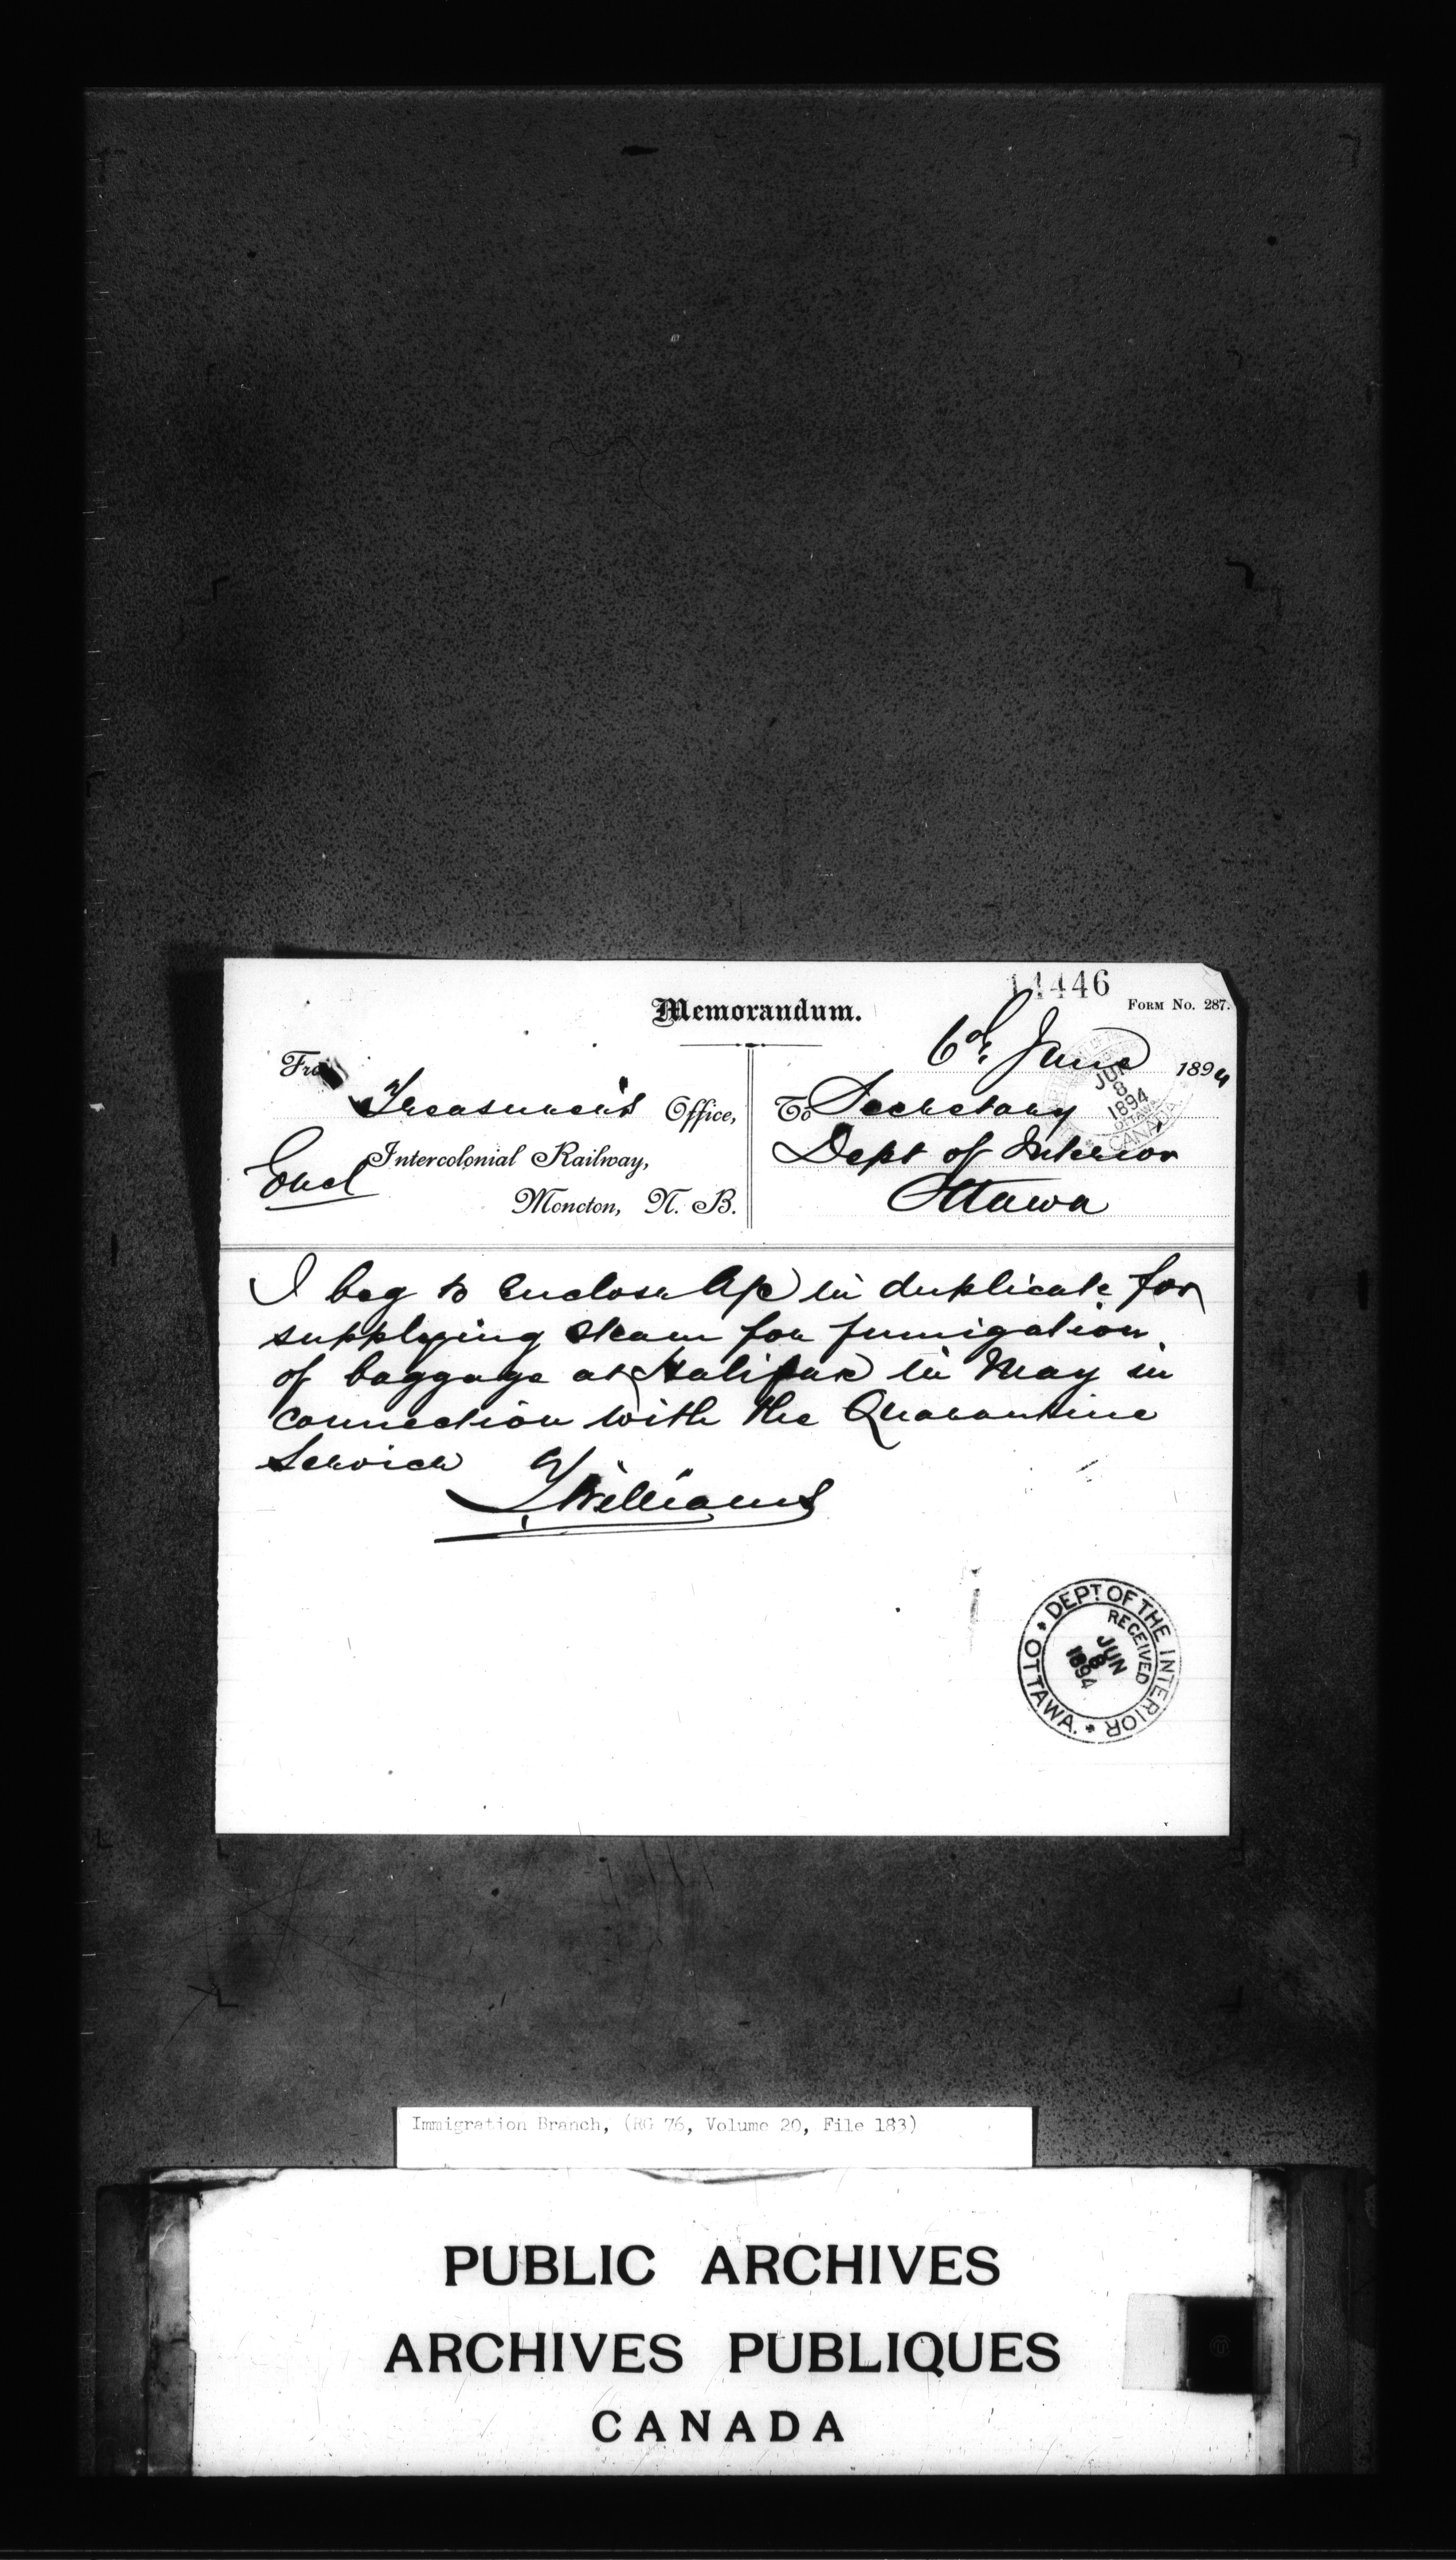 14446
Memorandum.
Form No. 287.
6th June 1894
From
Treasurer's Office,
Intercolonial Railway,
Moncton, N. B.
Encl
To Secretary
Dept of Interior
Ottawa
JUN
8
1894
OTTAWA
CANADA
I beg to enclose a/c in duplicate for
supplying steam for fumigation
of baggage at Halifax in May in
connection with the Quarantine
Service
T Williams
DEPT OF THE INTERIOR
RECEIVED
JUN
8
1894
OTTAWA.
Immigration Branch, (RG 76, Volume 20, File 183)
PUBLIC ARCHIVES
ARCHIVES PUBLIQUES
CANADA